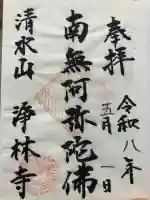 奉拝
令和八年
五月一日
南無阿弥陀佛
清水山
浄林寺